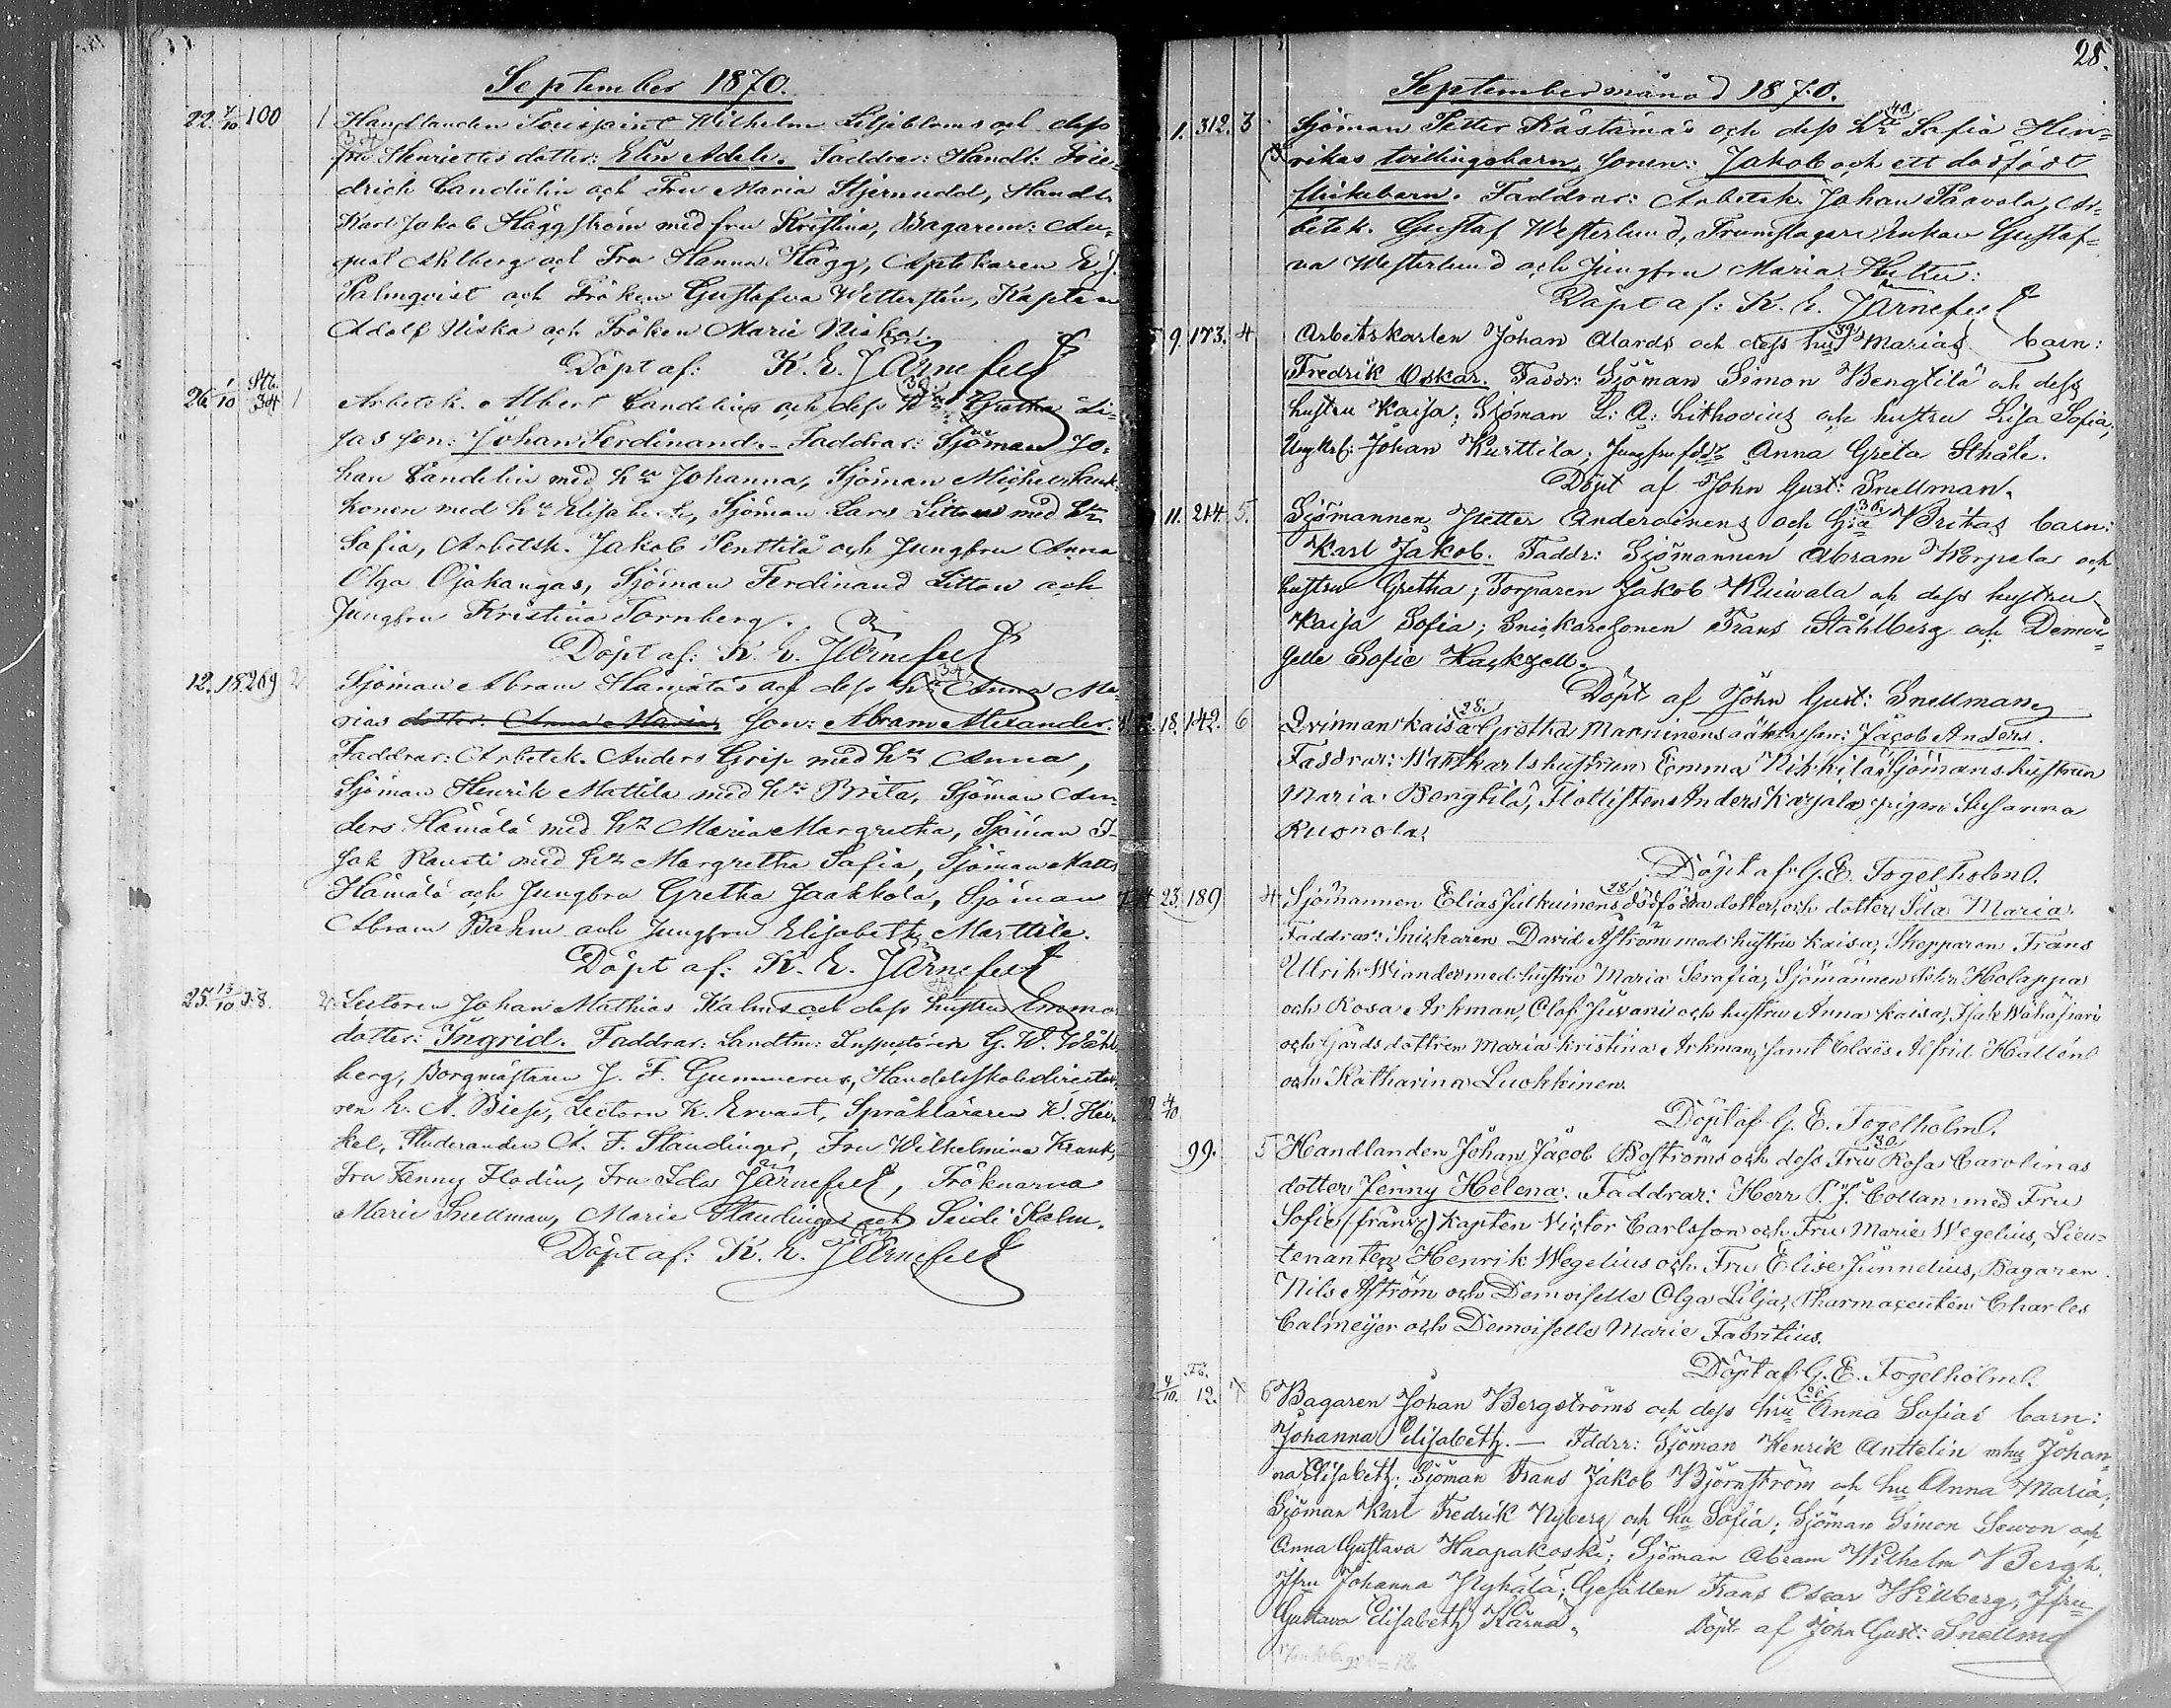 September 1870.
22. 7/10 100 1 Handlanden Torispint Wilhelm Liljebloms och dess
34
fru Henriettes dotter: Elin Adele. Faddrar: Handl: Frie-
drich Candelin och Fru Maria Stjernudd, Handl.
Karl Jakob Häggström med fru Kristina, Bagaren: Au-
gust Ahlberg och Fru Hanna Hägg, Aptekaren E. J.
Palmqvist och Fröken Gustafva Wettersten, Kapten
Adolf Niska och Fröken Marie Niska.
Döpt af: K. E. Järnefelt
26. 1/10 Stt. 34 1 Arbetsk. Albert Candelins och dess Hu Gretha Li-
30
sas son: Johan Ferdinand. Faddrar: Sjöman Jo-
han Candelin med Hu Johanna, Sjöman Michel
konen med Hu Elisabeth, Sjöman Lars Litton med Hu
Sofia, Arbetsk. Jakob Penttilä och Jungfru Anna
Olga Ojakangas, Sjöman Ferdinand Litton och
Jungfru Kristina Tornberg.
Döpt af: K. E. Järnefelt
12. 18. 269 2 Sjöman Abram Hämäläs och dess Hu Anna Ma-
34
rias dotter: Anna Maria, Son: Abram Alexander.
Faddrar: Arbetsk. Anders Grip med Hu Anna,
Sjöman Henrik Mattila med Hu Brita, Sjöman An-
ders Hämälä med Hu Maria Margretha, Sjöman I-
sak Rausti med Hu Margretha Sofia, Sjöman Matts
Hämälä och Jungfru Gretha Jaakkola, Sjöman
Abram Bahm och Jungfru Elisabeth Marttila.
Döpt af: K. E. Järnefelt
25. 13/10 58. 2 Lectoren Johan Mathias Kalms och dess hustru Emma
dotter: Ingrid. Faddrar: Landtm: Inspectören G. W. Wahl-
berg, Borgmästaren J. F. Gummerus, Handelsskoledirecto-
ren E. A. Biese, Lectorn K. Ervast, Språkläraren K. Hei-
kel, Studeranden A. F. Staudinger, Fru Wilhelmina Krank,
Fru Fanny Flodin, Fru Ida Järnefelt, Fröknarna
Marie Snellman, Marie Staudinger och Seidi Kalm.
Döpt af: K. E. Järnefelt
28.
Septembermånad 1870.
1. 312. 3 Sjöman Petter Kästämäs och dess Hu Safia Hen-
40
rikas tvillingsbarn, sonen: Jakob och ett dödfödt
flickebarn. Faddrar: Arbetsk. Johan Paavola, Ar-
betsk. Gustaf Westerlund, Trumslagare Enkan Gustaf-
va Westerlund och Jungfru Maria Huttu:
Döpt af: K. E. Järnefelt
5 9. 173. 4 Arbetskarlen Johan Alards och dess hu Marias barn:
39
Fredrik Oskar. Faddr: Sjöman Simon Bengtilä och dess
hustru Kaisa; Sjöman L: A: Lithovius och hustru Lisa Sofia;
Ungkrl: Johan Kurttila; Jungfru Anna Greta Sthåle.
Döpt af John Gust: Snellman.
11. 214. 5. Sjömannen Petter Andervinens och hu Britas barn:
30
Karl Jakob. Faddr: Sjömannen Abram Worpela och
hustru Gretha; Torparen Jakob Kuivala och dess hustru
Kaisa Sofia; Snickaresonen Frans Ståhlberg och Demoi-
selle Sofie Hackzell.
Döpt af John Gust: Snellman
18. 142. 6 Qvinnan Kaisa Gretha Manninens oäkta son: Jacob Anders.
28.
Faddrar: Waktkarlshustrun Emma Nikkilä, Sjömanshustrun
Maria Bengtilä, Flottisten Anders Karjala, pigan Susanna
Kuonola.
Döpt af G. E. Fogelholm.
23. 189 4 Sjömannen Elias Julkuinens dödfödda dotter och dotter Ida Maria.
28
Faddrar: Snickaren David Åström med hustru Kaisa, Skepparen Frans
Ulrik Wiander med hustru Maria Serafia, Sjömannen Holappa
och Rosa Arkman, Olof Juvani och hustru Anna Kaisa, Isak Wähäjärvi
och Gårdsdottren Maria Kristina Arkman, samt Claës Alfrid Hallén
och Katharina Luokkinen.
Döpt af G. E. Fogelholm.
22. 4/10
99. 5 Handlanden Johan Jacob Boströms och dess Fru Rosa Carolinas
30
dotter Jenny Helena. Faddrar: Herr P. J. Collan med Fru
Sofie (fränz) Kapten Victor Carlsson och Fru Marie Wegelius, Lieu-
tenanten Henrik Wegelius och Fru Elise Junnelius, Bagaren
Nils Åström och Demoiselle Olga Lilja, Pharmaceuten Charles
Calmeyer och Demoiselle Marie Fabritius.
Döpt af G. E. Fogelholm.
4/10. 12. 7 6 Bagaren Johan Bergströms och dess hru Anna Sofias barn:
26
Johanna Elisabeth. — Fddrr: Sjöman Henrik Anttelin mhu Johan-
na Elisabeth; Sjöman Frans Jakob Björnström och hu Anna Maria;
Sjöman Karl Fredrik Nyberg och hu Sofia; Sjöman Simon Sewon och
Anna Gustava Haapakoski; Sjöman Abram Wilhelm Bergh,
Jfru Johanna Pyhälä; Gesällen Frans Oscar Willberg, Jfru
Gustava Elisabeth Kärnä.
Döpt af John Gust: Snellma